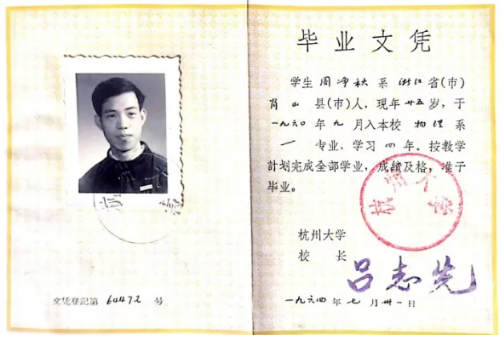 文凭登记第 64472 号
毕业文凭
学生 周净秋 系 浙江 省(市)
肖山 县(市)人,现年 廿五 岁,于
一九六〇 年 九 月入本校 物理 系
一 专业,学习 四 年,按教学
计划完成全部学业,成绩及格,准予
毕业。
杭州大学
校 长 吕志先
一九六四 年 七 月 卅一 日
杭州大学